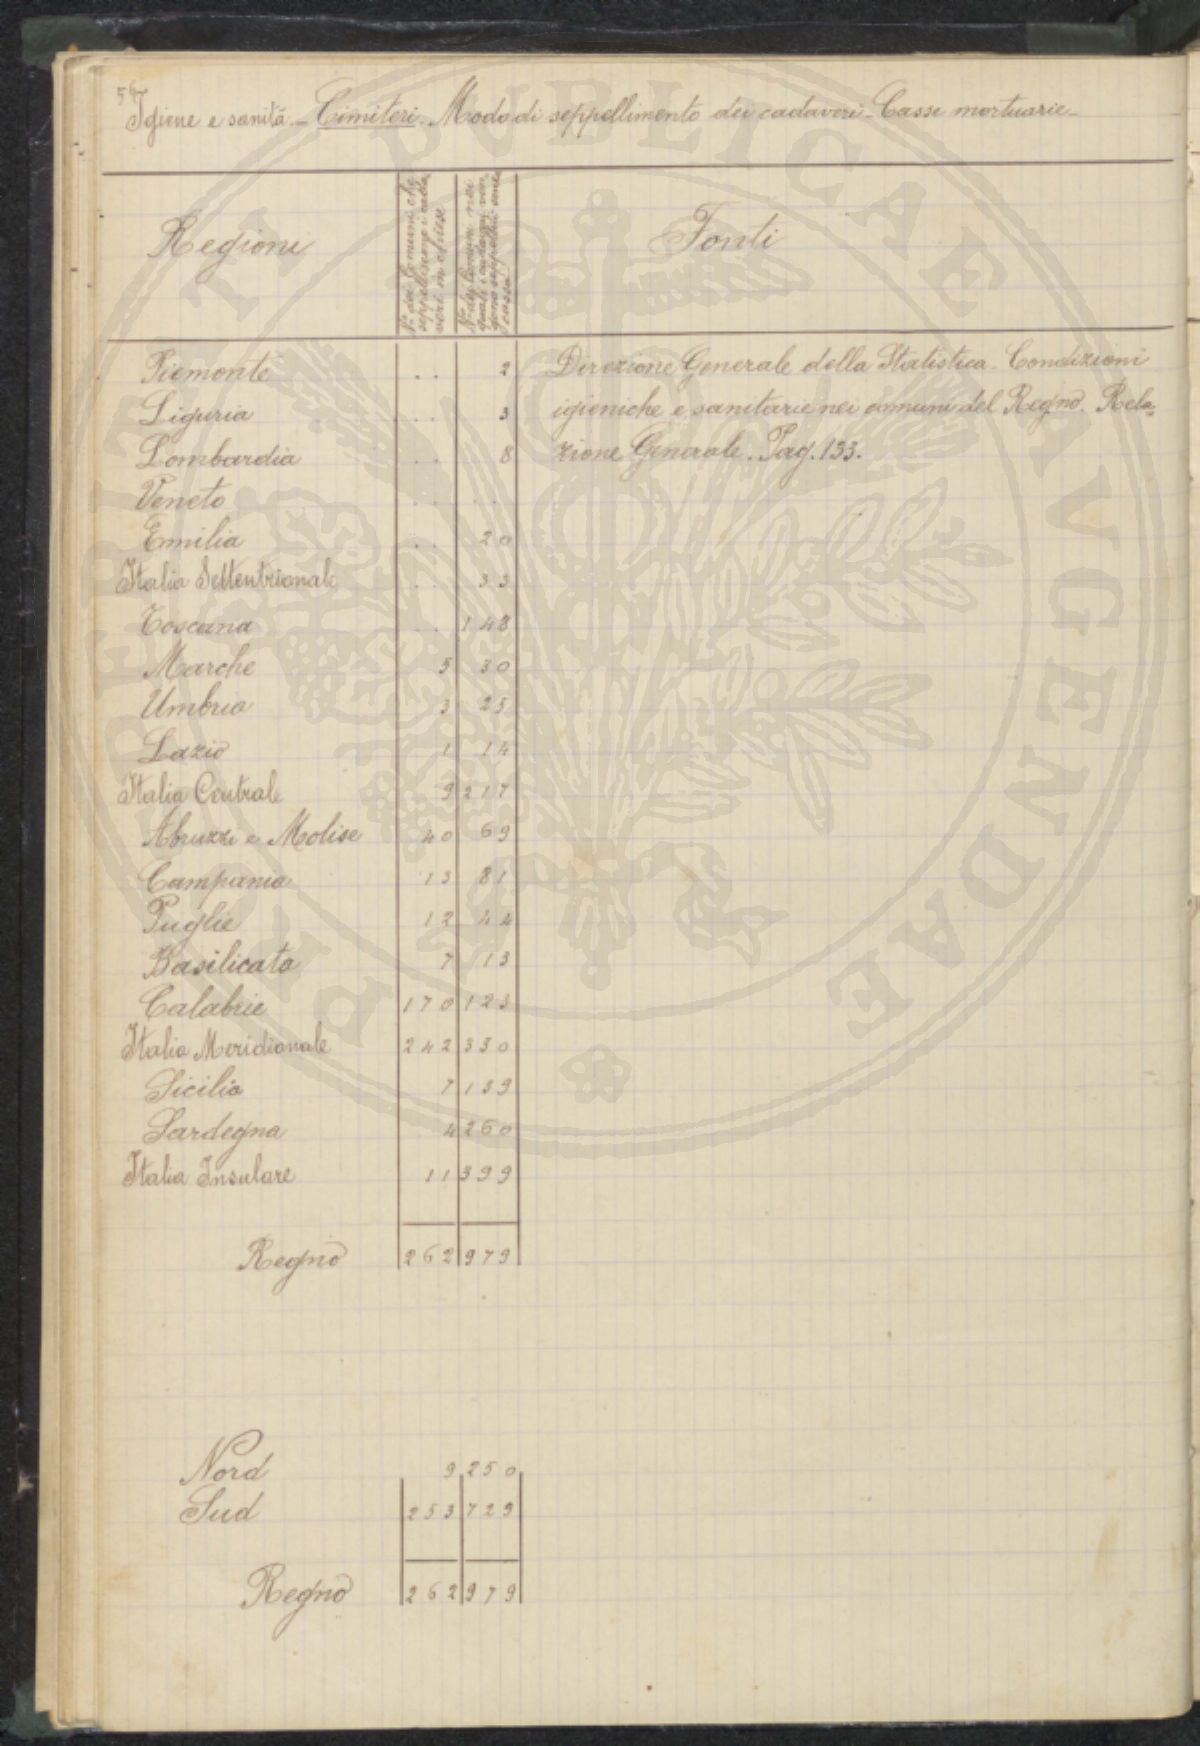 56
Igiene e sanità - Cimiteri. Modo di seppellimento dei cadaveri - Casse mortuarie -
Regioni
N.º dei Comuni che
seppelliscono i cada
veri in chiese
N.º dei Comuni nei
quali i cadaveri ven
gono seppelliti senza
cassa
Fonti
Piemonte . . 2 Direzione Generale della Statistica. Condizioni
Liguria . . 3 igieniche e sanitarie nei comuni del Regno. Rela-
Lombardia . . 8 zione Generale. Pag. 133.
Veneto . . . .
Emilia . . 20
Italia Settentrionale . . 33
Toscana . . 148
Marche 5 30
Umbria 3 25
Lazio 1 14
Italia Centrale 9 217
Abruzzi e Molise 40 69
Campania 13 81
Puglie 12 44
Basilicata 7 13
Calabrie 170 123
Italia Meridionale 242 330
Sicilia 7 139
Sardegna 4 260
Italia Insulare 11 399
Regno 262 979
Nord 9 250
Sud 253 729
Regno 262 979
PUBLICAE AVGENDAE